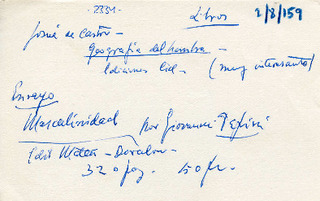 2334-
Libros
2/8/159
Josué de Castro -
Geografía del hambre -
Ediciones Cid - (muy interesante)
Ensayo
Masculinidad por Giovanni
Edit - Barcelona -
320 pag. 150 Pts.